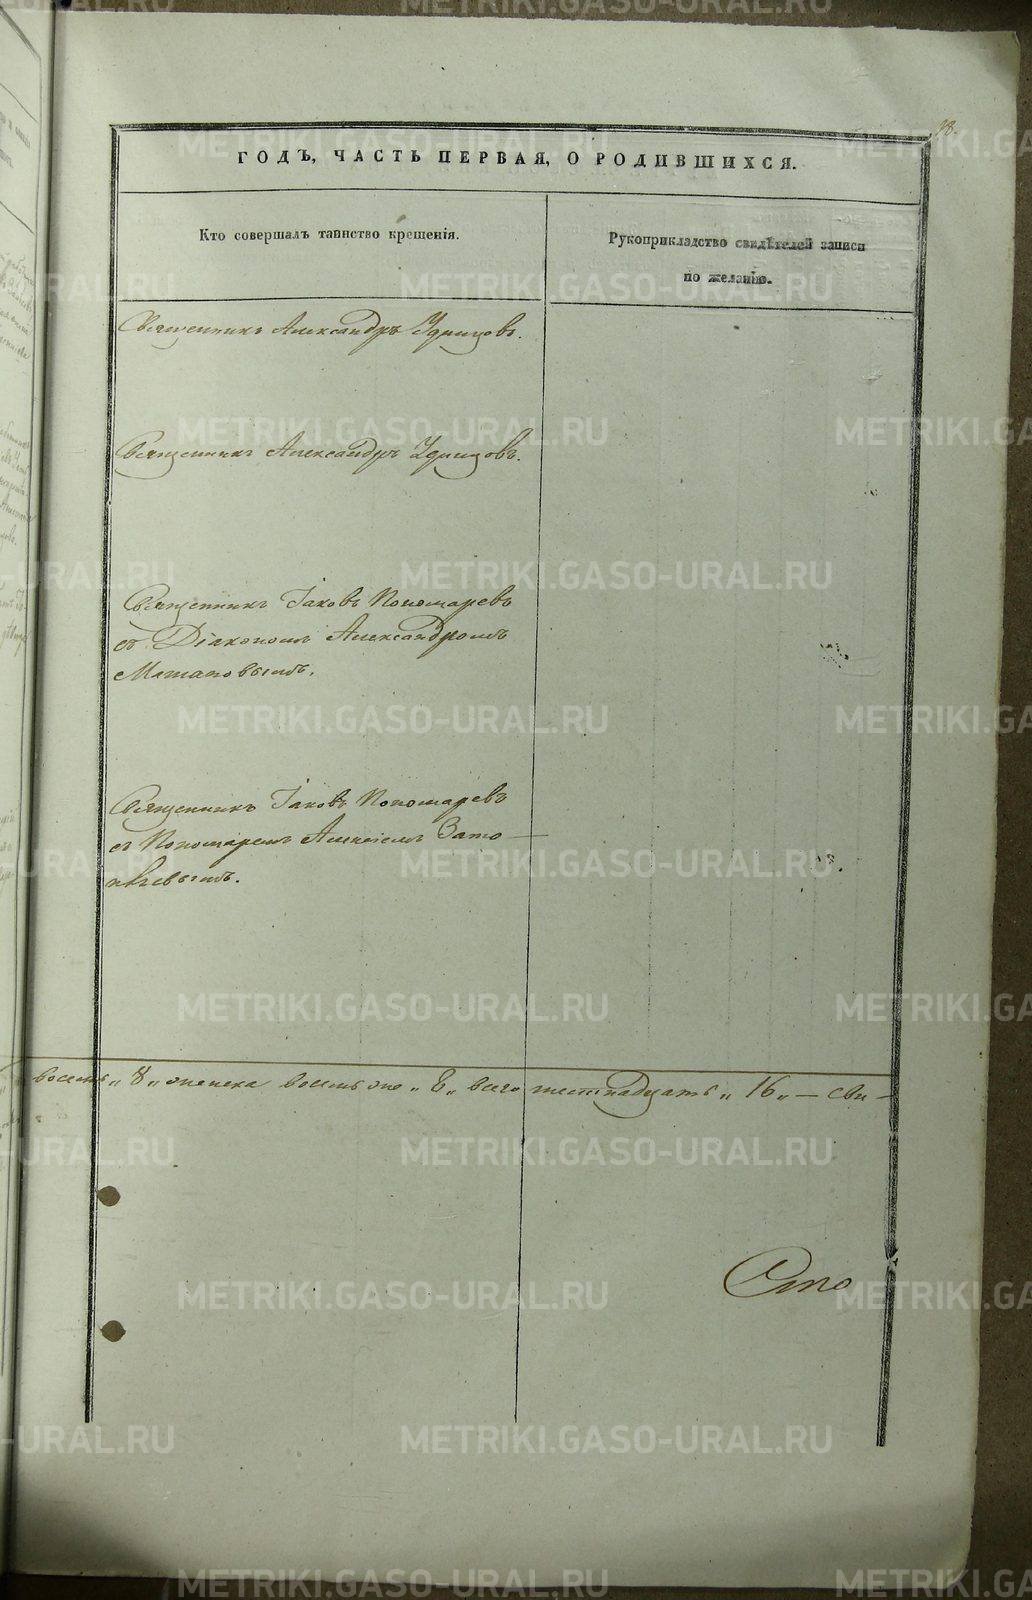 98.
ГОДЪ, ЧАСТЬ ПЕРВАЯ, О РОДИВШИХСЯ.
Кто совершалъ таинство крещенія.
Рукоприкладство свидѣтелей записи
по желанію.
Священникъ Александръ Удинцовъ.
Священникъ Александръ Удинцовъ.
Священникъ Іаковъ Пономаревъ
съ Діакономъ Александромъ
Священникъ Іаковъ Пономаревъ
съ Пономаремъ Алексіемъ Зато-
пляевымъ.
восемь „8„ женска восемь же „8„ всего шестнадцать „16„ — сви-
METRIKI.GASO-URAL.RU